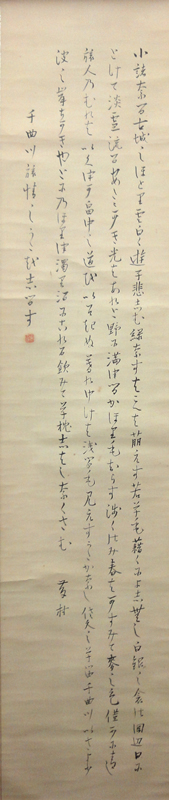 小諸なる古城のほとり雲白く遊子悲しむ緑なすはこべは萌えす若草も藉くによし無し白銀の衾の岡辺日に
とけて淡雪流るあたゝかき光はあれど野に満つるかほりもしらず浅くのみ春はかすみて麦の色僅かに青し
旅人のむれはいくつか畠中の道をいそぎぬ暮れゆけば浅間も見えずうたかなし佐久の草笛千曲川いざよふ
波の岸ちかきやどにのぼりつ濁り酒にごれる飲みて草枕しばしなぐさむ 藤村
千曲川旅情のうたをしるす